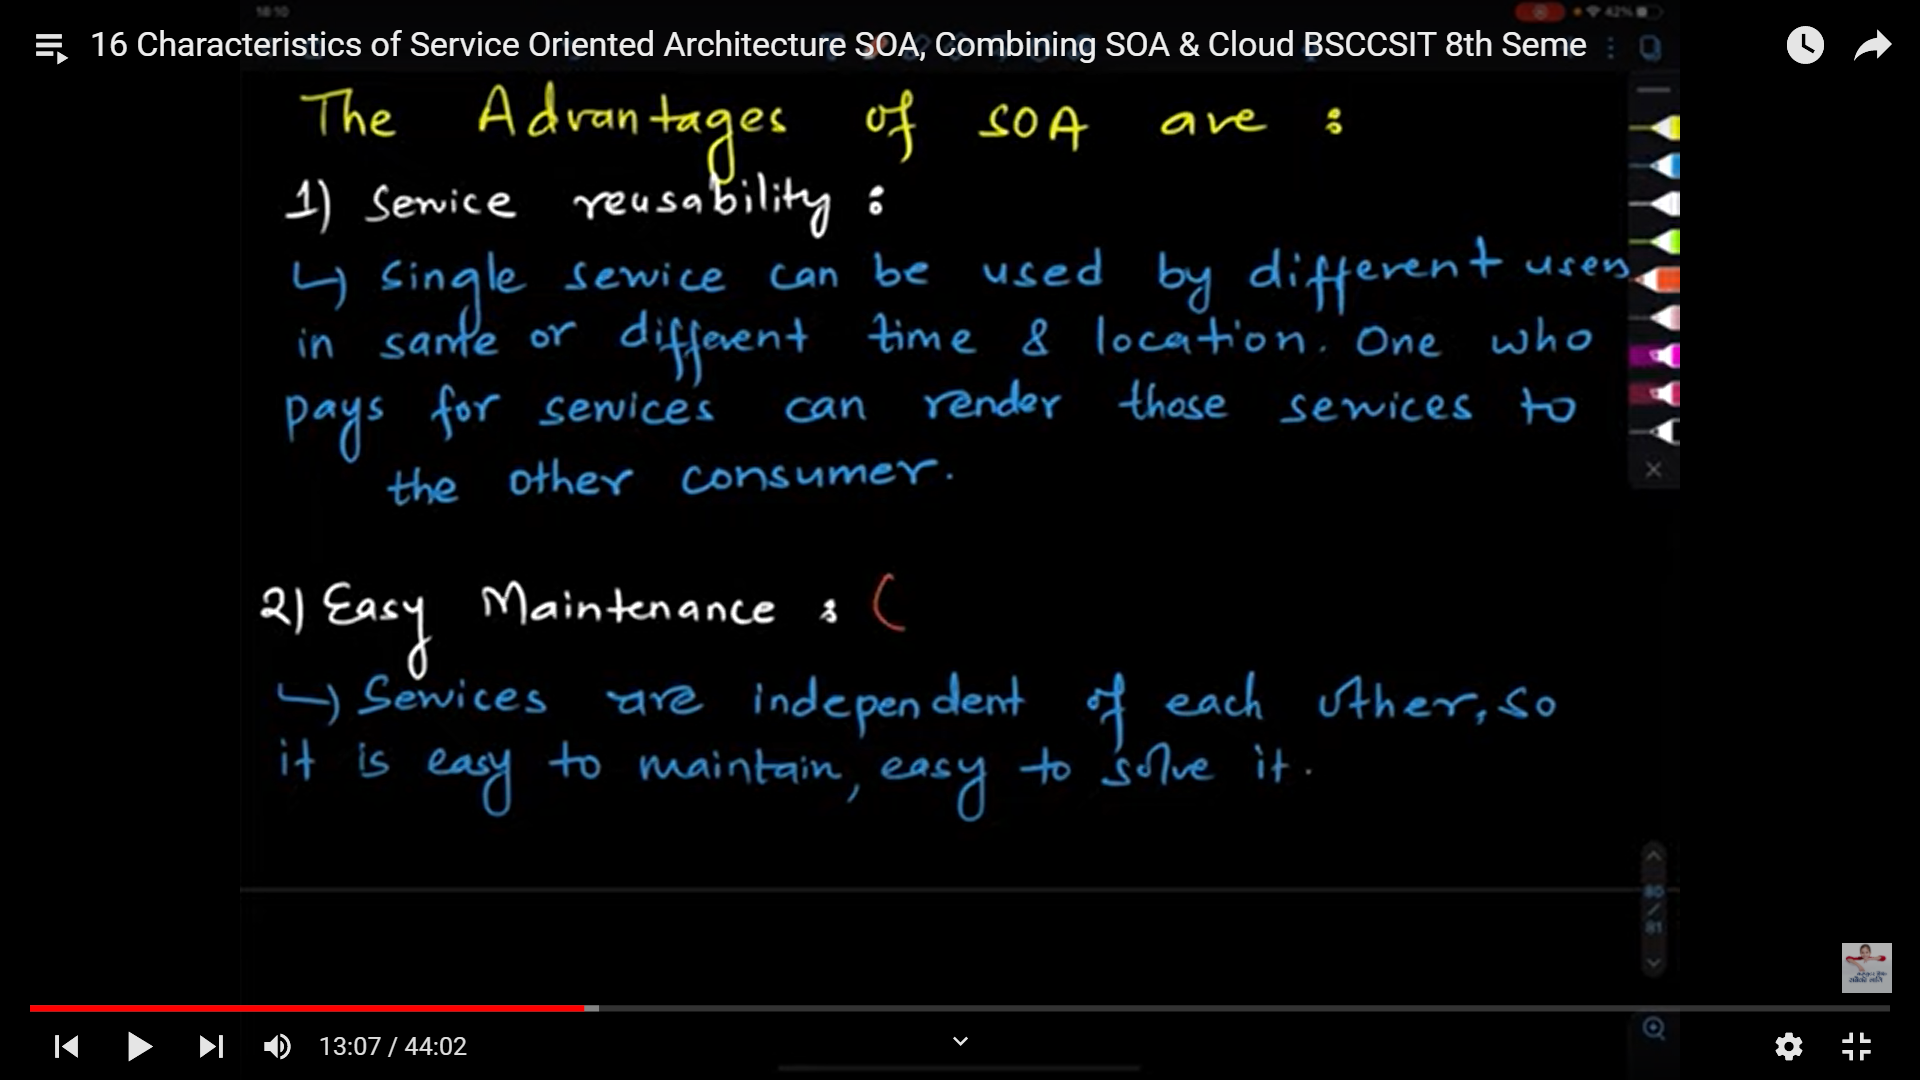 18:10
42%
16 Characteristics of Service Oriented Architecture SOA, Combining SOA & Cloud BSCCSIT 8th Seme
The Advantages of SOA are :
1) Service reusability :
↳ Single service can be used by different users
in same or different time & location. One who
pays for services can render those services to
the other consumer.
2) Easy Maintenance : (
↳ Services are independent of each other, so
it is easy to maintain, easy to solve it.
80
/
81
13:07 / 44:02